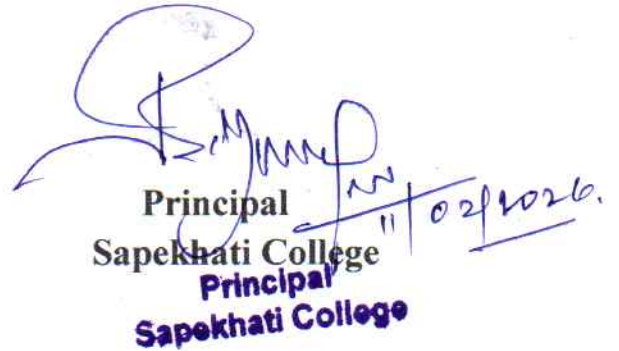 11/02/2026.
Principal
Sapekhati College
Principal
Sapekhati College